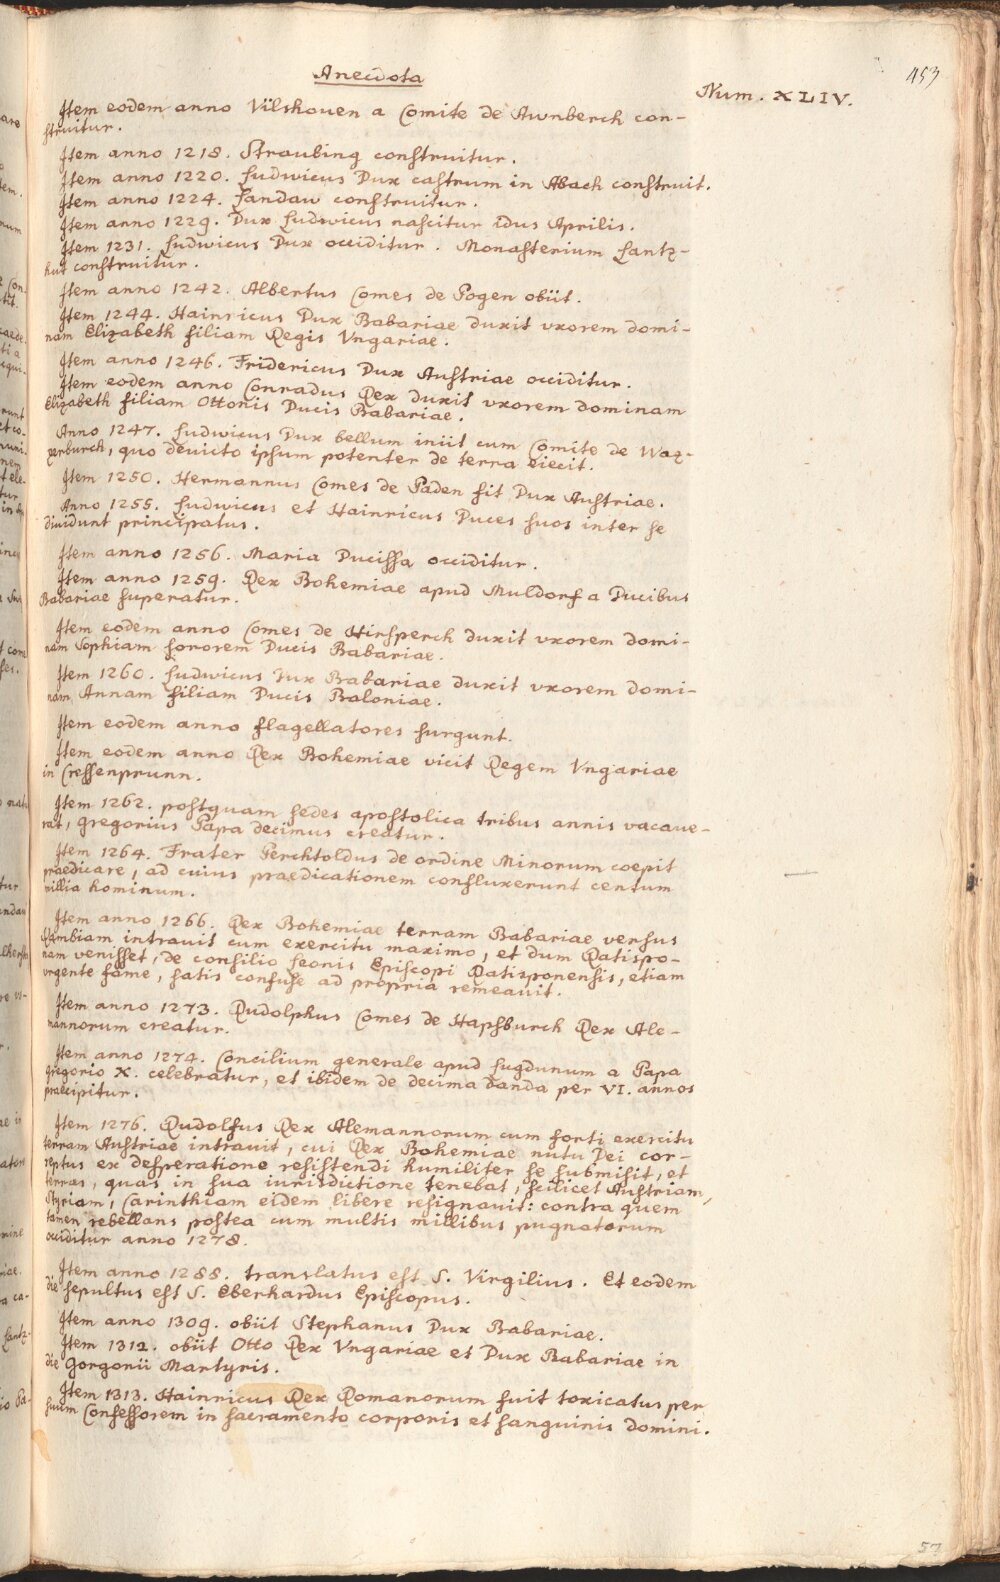 Anecdota
453
Num. XLIV.
Item eodem anno Vilshouen a Comite de Awnberch con-
struitur.
Item anno 1218. Straubing construitur.
Item anno 1220. Ludwicus Dux castrum in Abach construit.
Item anno 1224. Landaw construitur.
Item anno 1229. Dux Ludwicus nascitur idus Aprilis.
Item 1231. Ludwicus Dux occiditur. Monasterium Lantz-
hut construitur.
Item anno 1242. Albertus Comes de Pogen obiit.
Item 1244. Hainricus Dux Babariae duxit vxorem domi-
nam Elizabeth filiam Regis Vngariae.
Item anno 1246. Fridericus Dux Austriae occiditur.
Item eodem anno Conradus Rex duxit vxorem dominam
Elizabeth filiam Ottonis Ducis Babariae.
Anno 1247. Ludwicus Dux bellum iniit cum Comite de Waz-
zerburch, quo devicto ipsum potenter de terra eiecit.
Item 1250. Hermannus Comes de Paden fit Dux Austriae.
Anno 1255. Ludwicus et Hainricus Duces suos inter se
diuidunt principatus.
Item anno 1256. Maria Ducissa occiditur.
Item anno 1259. Rex Bohemiae apud Muldorf a Ducibus
Babariae superatur.
Item eodem anno Comes de Hirsperch duxit vxorem domi-
nam Sophiam sororem Ducis Babariae.
Item 1260. Ludwicus Dux Babariae duxit vxorem domi-
nam Annam filiam Ducis Baloniae.
Item eodem anno flagellatores surgunt.
Item eodem anno Rex Bohemiae vicit Regem Vngariae
in Cressenprunn.
Item 1262. postquam sedes apostolica tribus annis vacaue-
rat, gregorius Papa decimus creatur.
Item 1264. Frater Perchtoldus de ordine Minorum coepit
praedicare, ad cuius praedicationem confluxerunt centum
millia hominum.
Item anno 1266. Rex Bohemiae terram Babariae versus
Kambiam intrauit cum exercitu maximo, et dum Ratispo-
nam venisset, de consilio Leonis Episcopi Ratisponensis, etiam
vrgente fame, satis confuse ad propria remeauit.
Item anno 1273. Rudolphus Comes de Hapsburch Rex Ale-
mannorum creatur.
Item anno 1274. Concilium generale apud Lugdunum a Papa
gregorio X. celebratur, et ibidem de decima danda per VI. annos
praecipitur.
Item 1276. Rudolfus Rex Alemannorum cum forti exercitu
terram Austriae intrauit, cui Rex Bohemiae nutu Dei cor-
reptus ex desperatione resistendi humiliter se submisit, et
terras, quas in sua iurisdictione tenebat, scilicet Austriam,
Styriam, Carinthiam eidem libere resignauit: contra quem
tamen rebellans postea cum multis millibus pugnatorum
occiditur anno 1278.
Item anno 1288. translatus est S. Virgilius. Et eodem
die sepultus est S. Eberhardus Episcopus.
Item anno 1309. obiit Stephanus Dux Babariae.
Item 1312. obiit Otto Rex Vngariae et Dux Babariae in
die Gorgonii Martyris.
Item 1313. Hainricus Rex Romanorum fuit toxicatus per
suum Confessorem in sacramento corporis et sanguinis domini.